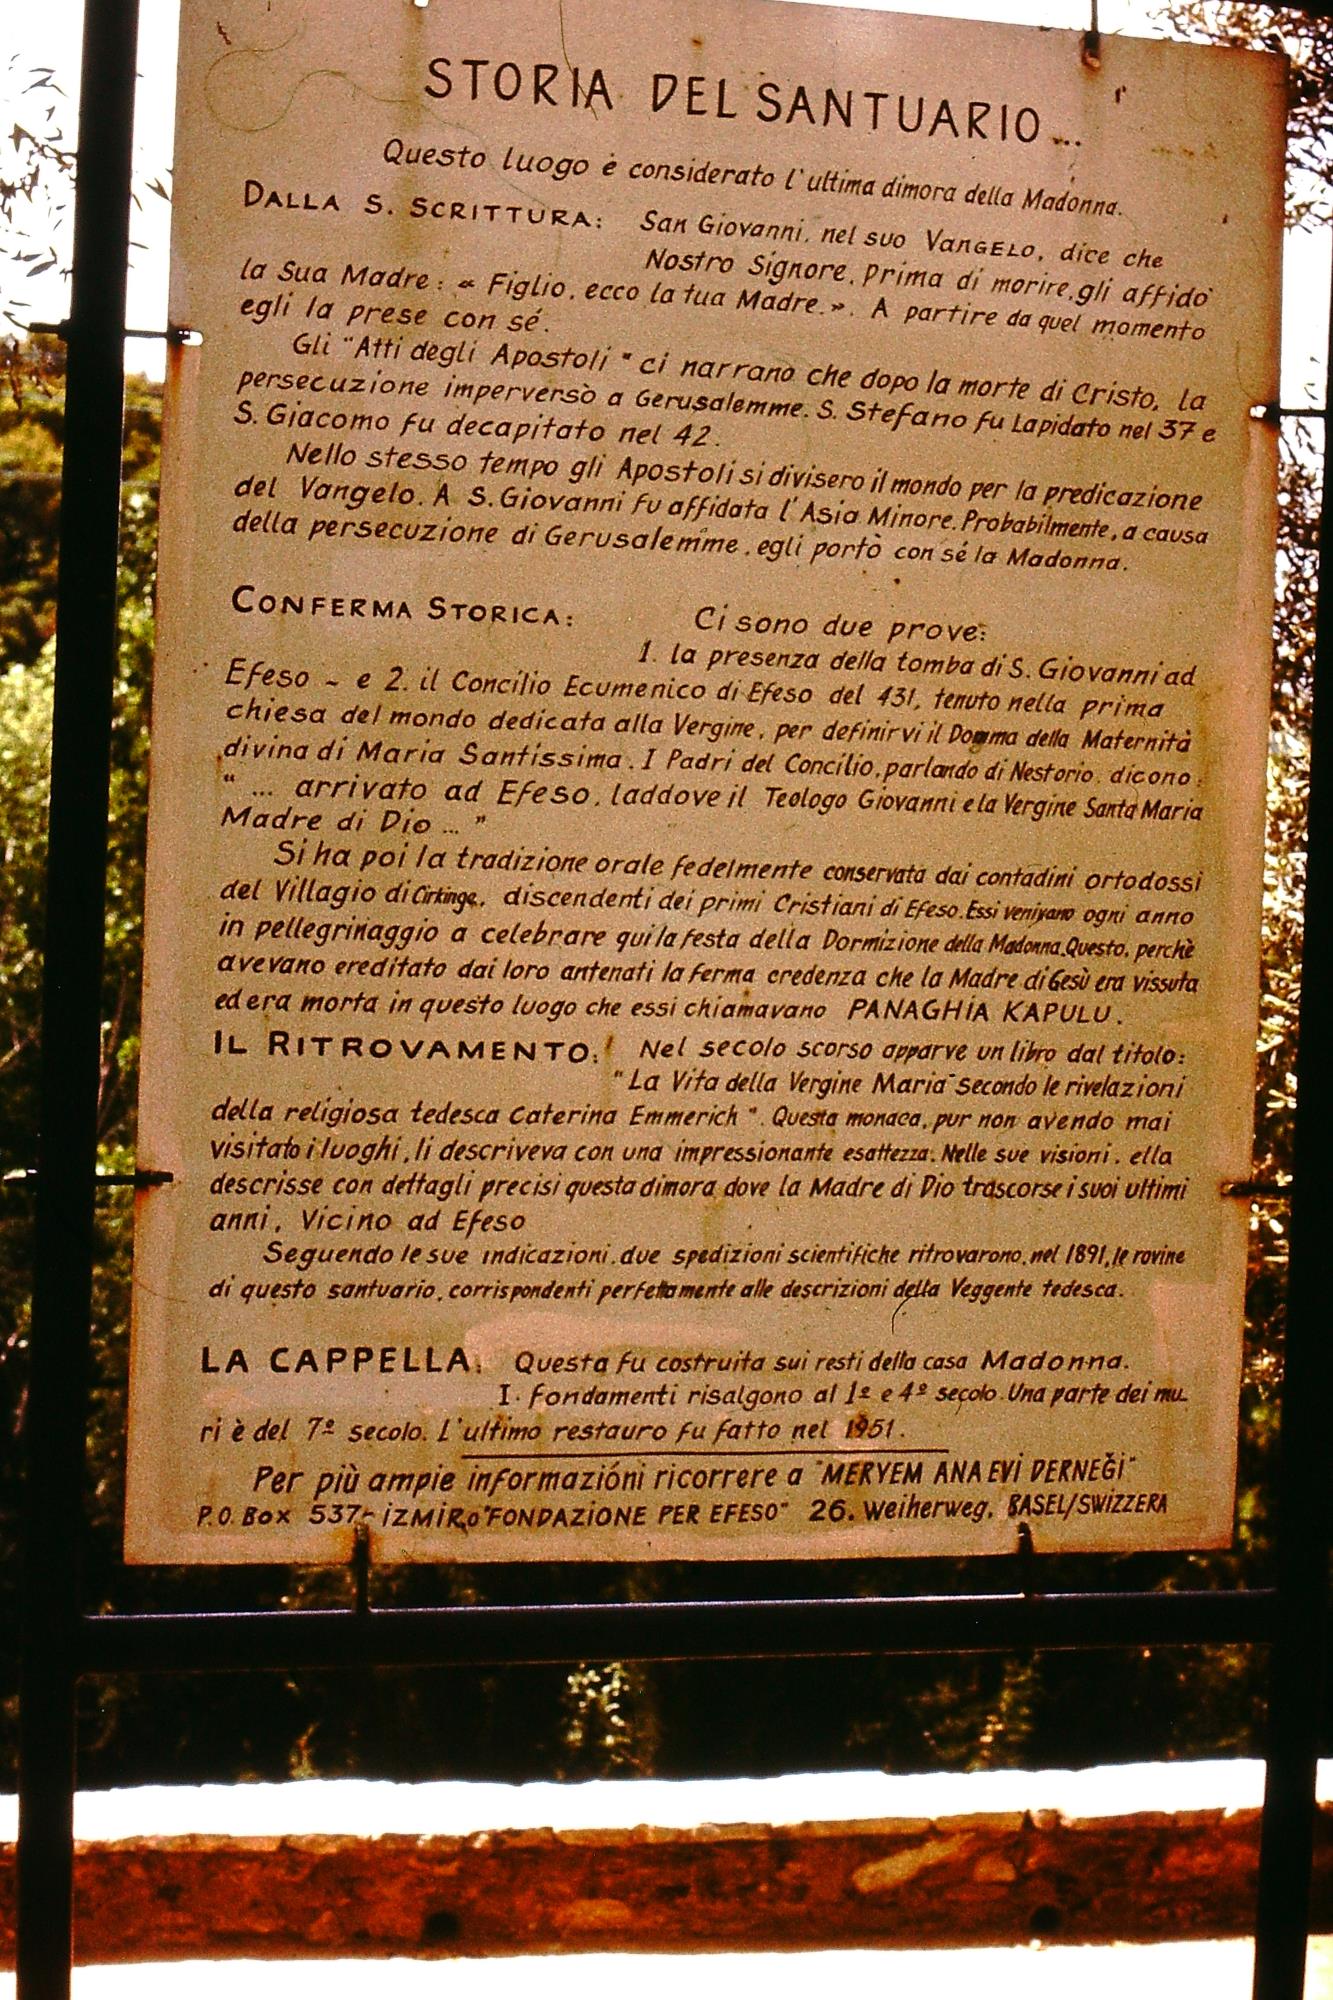 STORIA DEL SANTUARIO...
Questo luogo è considerato l'ultima dimora della Madonna.
DALLA S. SCRITTURA: San Giovanni, nel suo VANGELO, dice che
Nostro Signore, prima di morire, gli affidò
la Sua Madre: « Figlio, ecco la tua Madre.». A partire da quel momento
egli la prese con sé.
Gli "Atti degli Apostoli" ci narrano che dopo la morte di Cristo, la
persecuzione imperversò a Gerusalemme. S. Stefano fu Lapidato nel 37 e
S. Giacomo fu decapitato nel 42.
Nello stesso tempo gli Apostoli si divisero il mondo per la predicazione
del Vangelo. A S. Giovanni fu affidata l'Asia Minore. Probabilmente, a causa
della persecuzione di Gerusalemme, egli portò con sé la Madonna.
CONFERMA STORICA: Ci sono due prove:
1. la presenza della tomba di S. Giovanni ad
Efeso - e 2. il Concilio Ecumenico di Efeso del 431, tenuto nella prima
chiesa del mondo dedicata alla Vergine, per definirvi il Domma della Maternità
divina di Maria Santissima. I Padri del Concilio, parlando di Nestorio, dicono:
"... arrivato ad Efeso, laddove il Teologo Giovanni e la Vergine Santa Maria
Madre di Dio ... "
Si ha poi la tradizione orale fedelmente conservata dai contadini ortodossi
del Villagio di Cirkinge, discendenti dei primi Cristiani di Efeso. Essi venivano ogni anno
in pellegrinaggio a celebrare qui la festa della Dormizione della Madonna. Questo, perchè
avevano ereditato dai loro antenati la ferma credenza che la Madre di Gesù era vissuta
ed era morta in questo luogo che essi chiamavano PANAGHİA KAPULU.
IL RITROVAMENTO: Nel secolo scorso apparve un libro dal titolo:
"La Vita della Vergine Maria secondo le rivelazioni
della religiosa tedesca Caterina Emmerich". Questa monaca, pur non avendo mai
visitato i luoghi, li descriveva con una impressionante esattezza. Nelle sue visioni, ella
descrisse con dettagli precisi questa dimora dove la Madre di Dio trascorse i suoi ultimi
anni, Vicino ad Efeso
Seguendo le sue indicazioni, due spedizioni scientifiche ritrovarono, nel 1891, le rovine
di questo santuario, corrispondenti perfettamente alle descrizioni della Veggente tedesca.
LA CAPPELLA: Questa fu costruita sui resti della casa Madonna.
I. fondamenti risalgono al 1º e 4º secolo. Una parte dei mu-
ri è del 7º secolo. L'ultimo restauro fu fatto nel 1951.
Per più ampie informazióni ricorrere a "MERYEM ANA EVİ DERNEĞİ"
P.O. Box 537- İZMİR, o "FONDAZİONE PER EFESO" 26. Weiherweg, BASEL/SWİZZERA